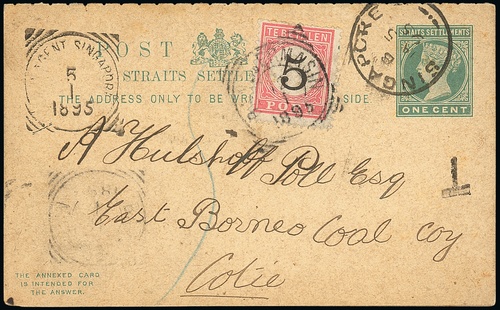 POST
STRAITS SETTLE
THE ADDRESS ONLY TO BE WRI SIDE
GENT SINGAPOR
5
1
1895
TE BETALEN
5
PO
1895
SINGAPORE
STRAITS SETTLEMENTS
ONE CENT
A Hulshoff Poll Esq
T
East Borneo Coal Coy
Cotie
THE ANNEXED CARD
IS INTENDED FOR
THE ANSWER.